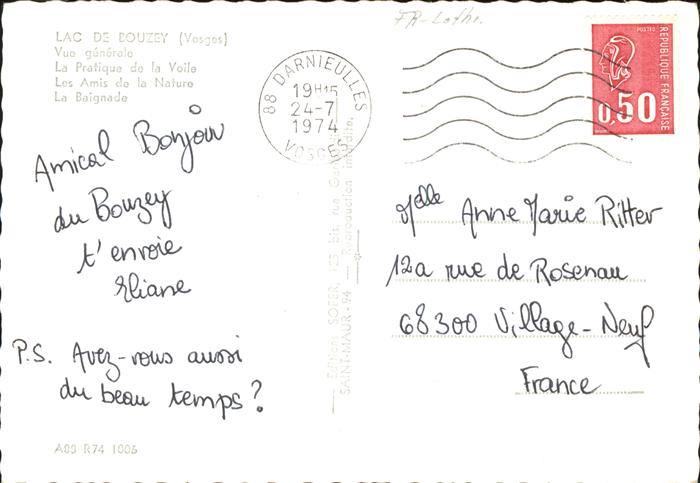 LAC DE BOUZEY (Vosges)
Vue générale
La Pratique de la Voile
Les Amis de la Nature
La Baignade
Amical Bonjour
du Bouzey
t'envoie
Eliane
P.S. Avez-vous aussi
du beau temps ?
A89 R74 1006
88 DARNIEULLES
19H15
24-7
1974
VOSGES
Editions SOFER, bis, rue
SAINT-MAUR - 94 - Reproduction interdite.
FR-Lothr.
POSTES
REPUBLIQUE FRANÇAISE
0,50
Melle Anne Marie Ritter
12a rue de Rosenau
68300 Village-Neuf
France